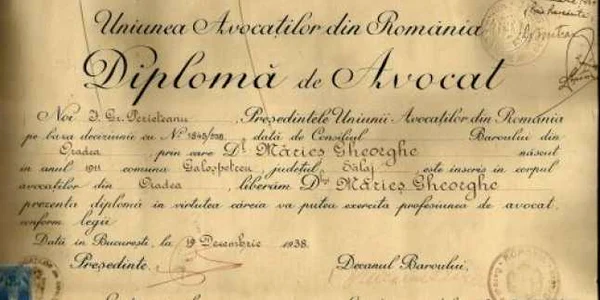 Uniunea Avocaților din România
Diplomă de Avocat
Noi I. Gr. Perieteanu, Președintele Uniunii Avocaților din România
pe baza deciziunie cu Nº 1845/938. dată de Consiliul Baroului din
Oradea, prin care Dl Mărieș Gheorghe născut
în anul 1911 comuna Galoșpetreu județul Salaj este înscris în corpul
avocaților din Oradea, liberăm Dlui Mărieș Gheorghe
prezenta diplomă în virtutea căreia va putea exercita profesiunea de avocat,
conform legii
Dată în București, la 19 Decembrie 1938.
Președinte, Decanul Baroului,